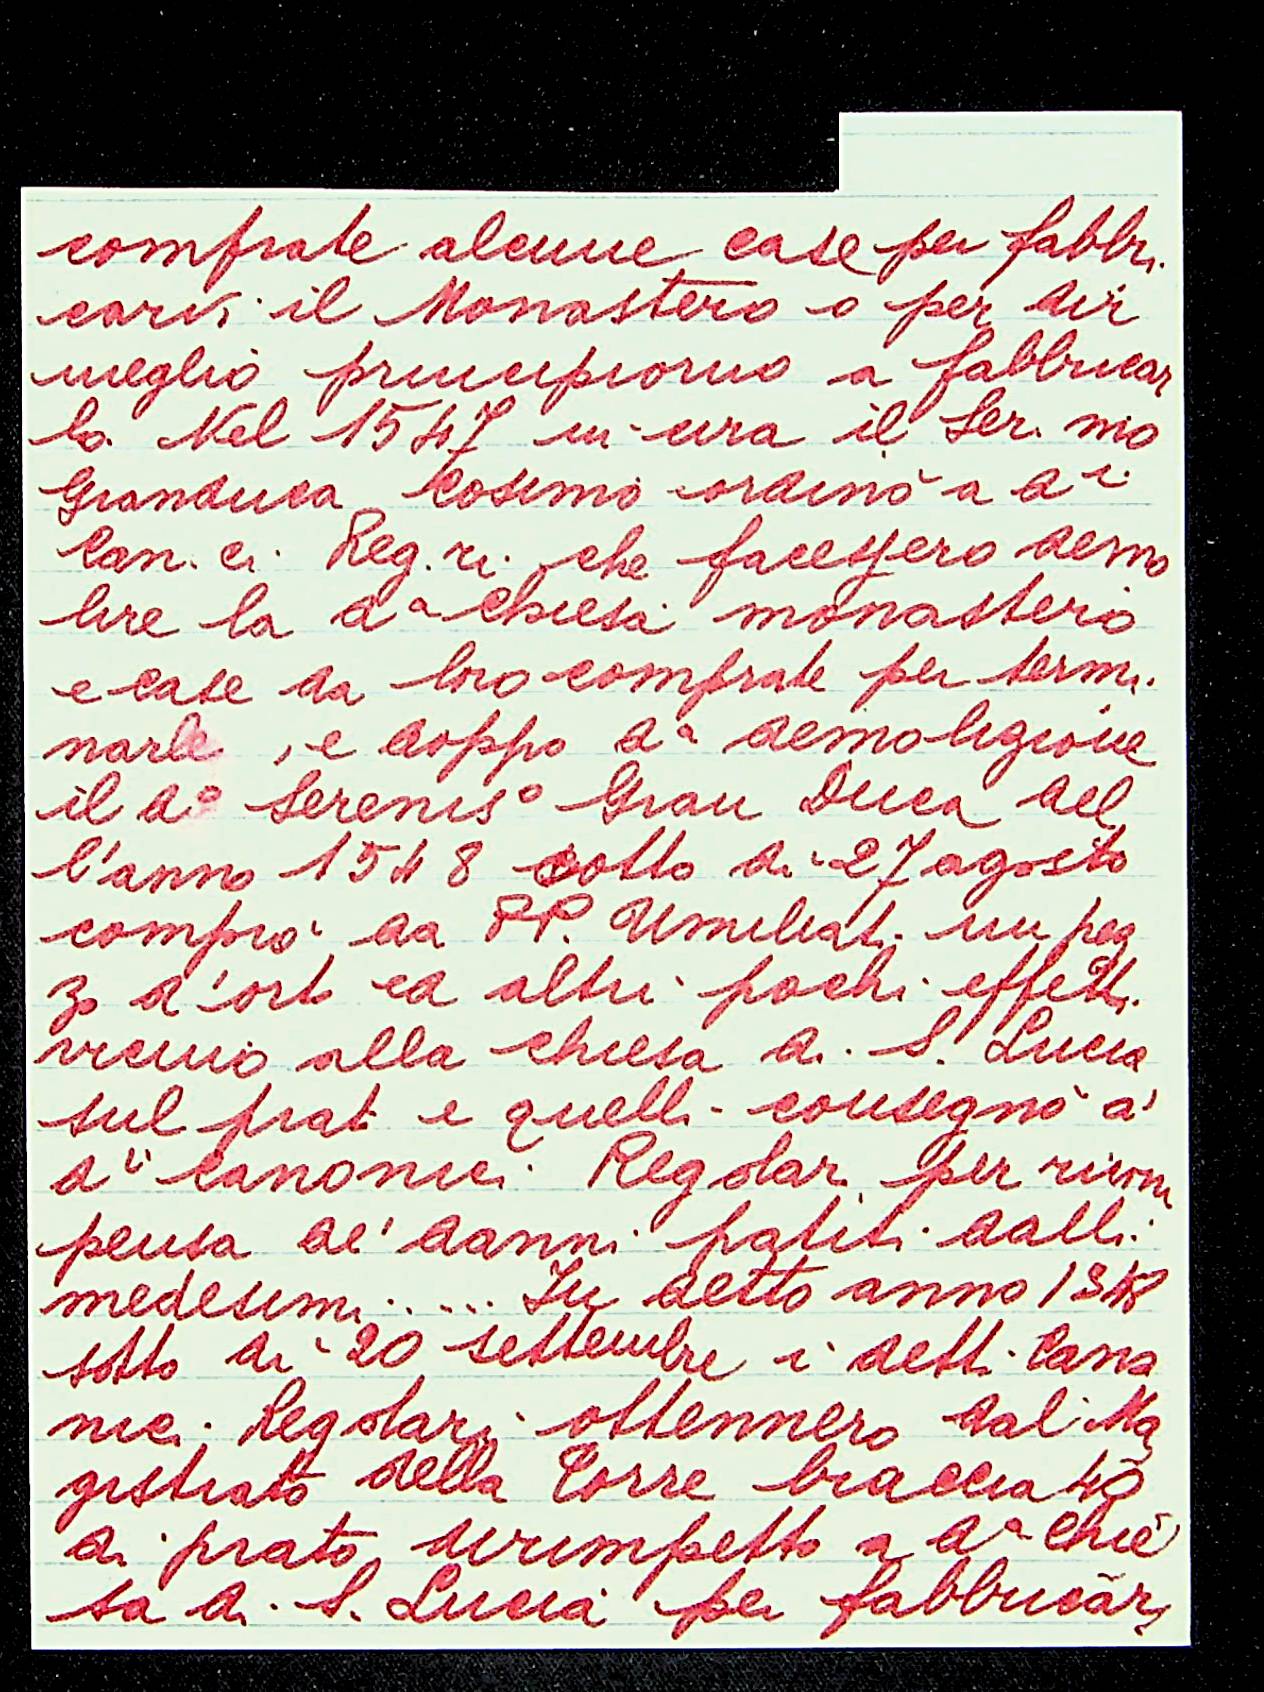 comprate alcune case per fabbri
carvi il Monastero o per dir
meglio principiorno a fabbricar
lo. Nel 1547 in circa il Ser. mo
Granduca Cosimo ordinò a dⁱ
Can. ci. Reg. ri. che facessero demo
lire la dª chiesa monasterio
e case da loro comprate per termi
narle, e doppo dª demolizione
il dº Serenisº Gran Duca del
l'anno 1548 sotto dì 27 agosto
comprò da PP. Umiliati un pez
zo d'orto ed altri pochi effetti
vicino alla chiesa di S. Lucia
sul prato e quelli consegnò a'
dⁱⁱ Canonici Regolari per ricom
pensa de' danni patiti dalli
medesimi ..... In detto anno 1548
sotto dì 20 settembre i detti Cano
nici Regolari ottennero dal Ma
gistrato della Torre braccia 40
di prato dirimpetto a dª Chie
sa di S. Lucia per fabbricar